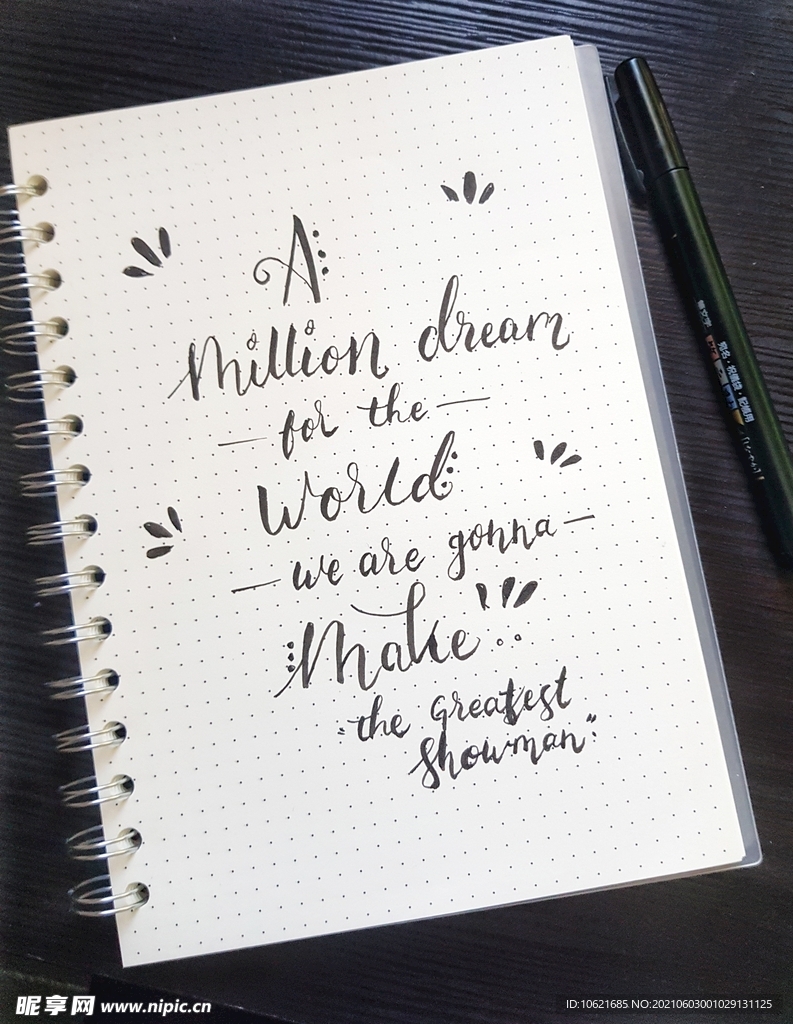 A
Million dream
— for the —
World
— we are gonna —
Make..
"the Greatest
Showman"
昵享网 www.nipic.cn
ID:10621685 NO:20210603001029131125